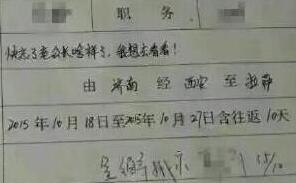 职 务
快忘了老公长啥样了，我想去看看！
由 济南 经 西安 至 拉萨
2015年10月18日至2015年10月27日含往返10天
15/10